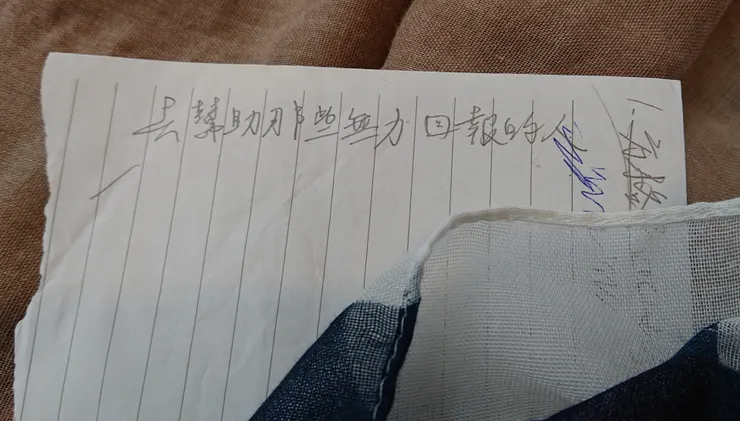 去幫助那些無力回報的人